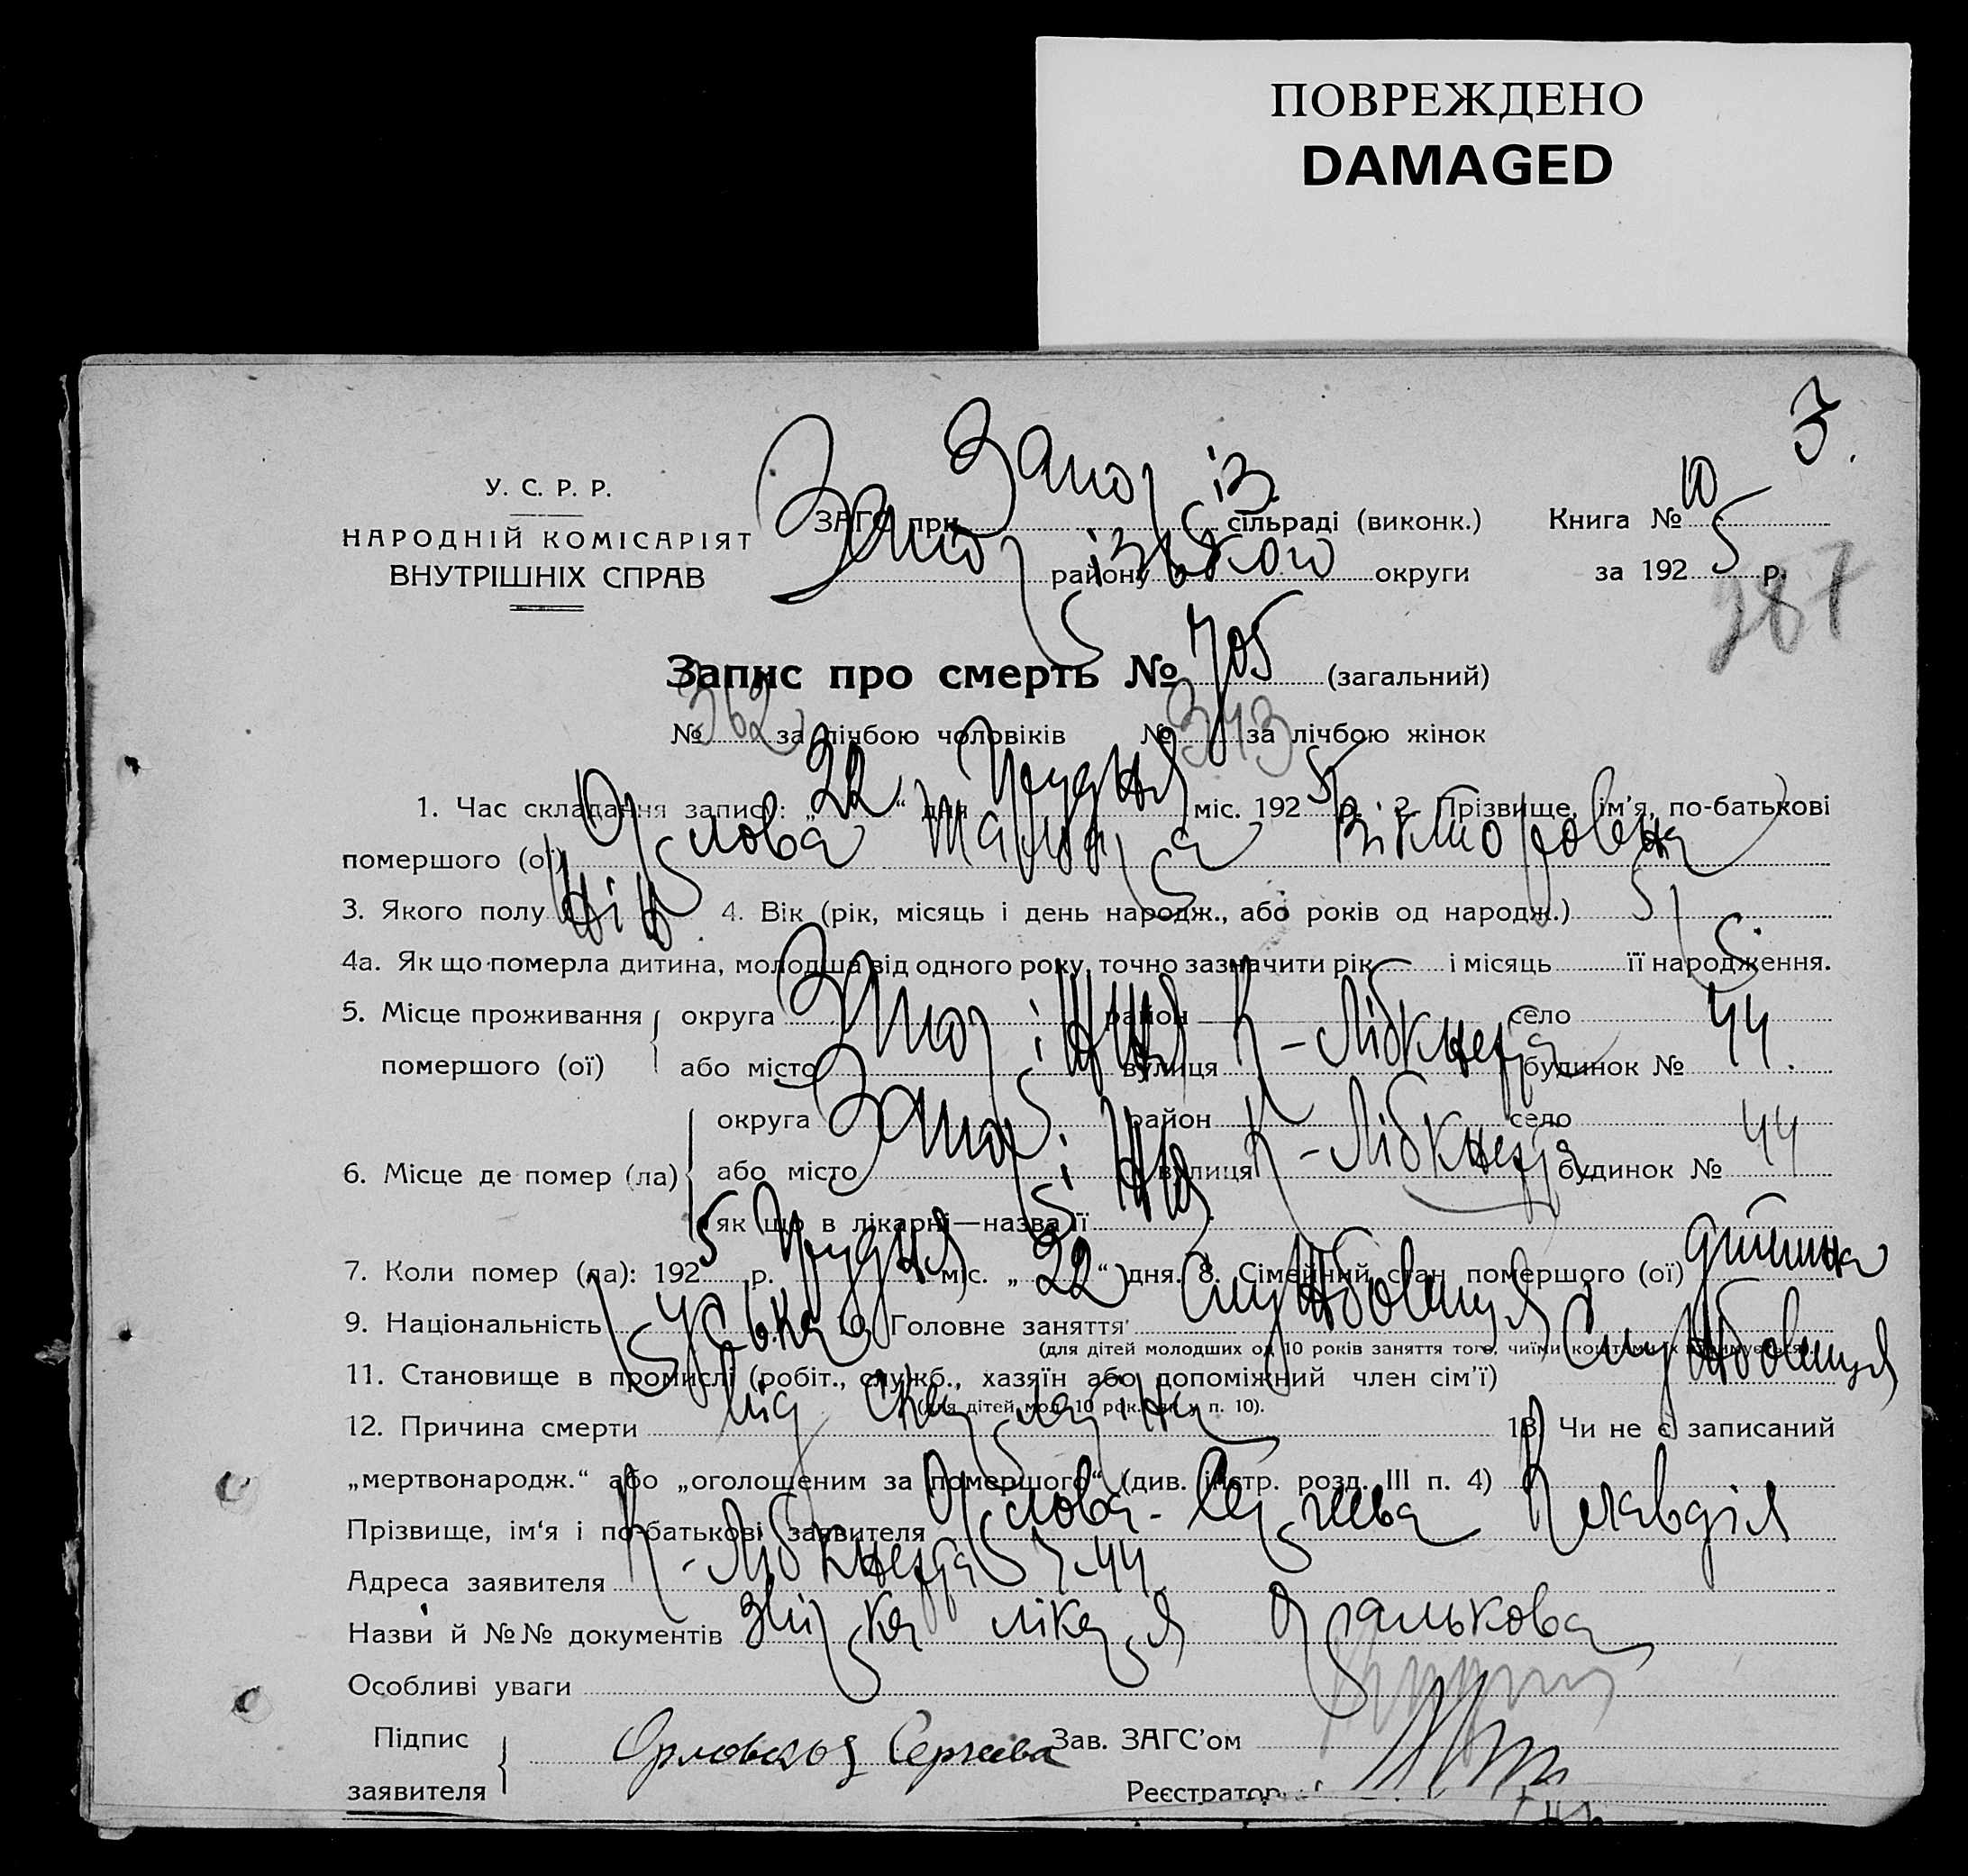 ПОВРЕЖДЕНО
DAMAGED
3.
У. С. Р. Р.
НАРОДНІЙ КОМІСАРІЯТ
ВНУТРІШНІХ СПРАВ
ЗАГС при Запоріз. сільраді (виконк.) Книга № 10
Запорізького району округи за 1925 р.
287
Запис про смерть № 705 (загальний)
№ 362 за лічбою чоловіків № 343 за лічбою жінок
1. Час складання запису: „22“ дня Грудня міс. 1925 р. 2. Прізвище, ім'я, по-батькові
помершого (ої) Орлова Тамара Вікторовна
3. Якого полу жін. 4. Вік (рік, місяць і день народж., або років од народж.) 5 р.
4а. Як що померла дитина, молодша від одного року, точно зазначити рік і місяць її народження.
5. Місце проживання округа район село
помершого (ої) або місто Запоріжжя вулиця К-Лібкнехта будинок № 44.
округа район село
6. Місце де помер (ла) або місто Запоріжжя вулиця К-Лібкнехта будинок № 44
як що в лікарні—назва її
7. Коли помер (ла): 1925 р. Грудня міс. „22“ дня. 8. Сімейний стан помершого (ої) дитина
9. Національність руська 10. Головне заняття Службовиця
(для дітей молодших од 10 років заняття того, чиїми коштами їх утримується).
11. Становище в промислі (робіт., служб., хазяїн або допоміжний член сім'ї) Службовиця
(для дітей мол. 10 рок. як у п. 10).
12. Причина смерти від скарлатіни 13. Чи не є записаний
„мертвонародж.“ або „оголошеним за помершого“ (див. інстр. розд. III п. 4)
Прізвище, ім‘я і по-батькові заявителя Орлова-Сергеева Клавдія
Адреса заявителя К-Лібкнехта 44
Назви й №№ документів лікаря
Особливі уваги
Підпис Зав. ЗАГС'ом
заявителя Сергеева Реєстратор